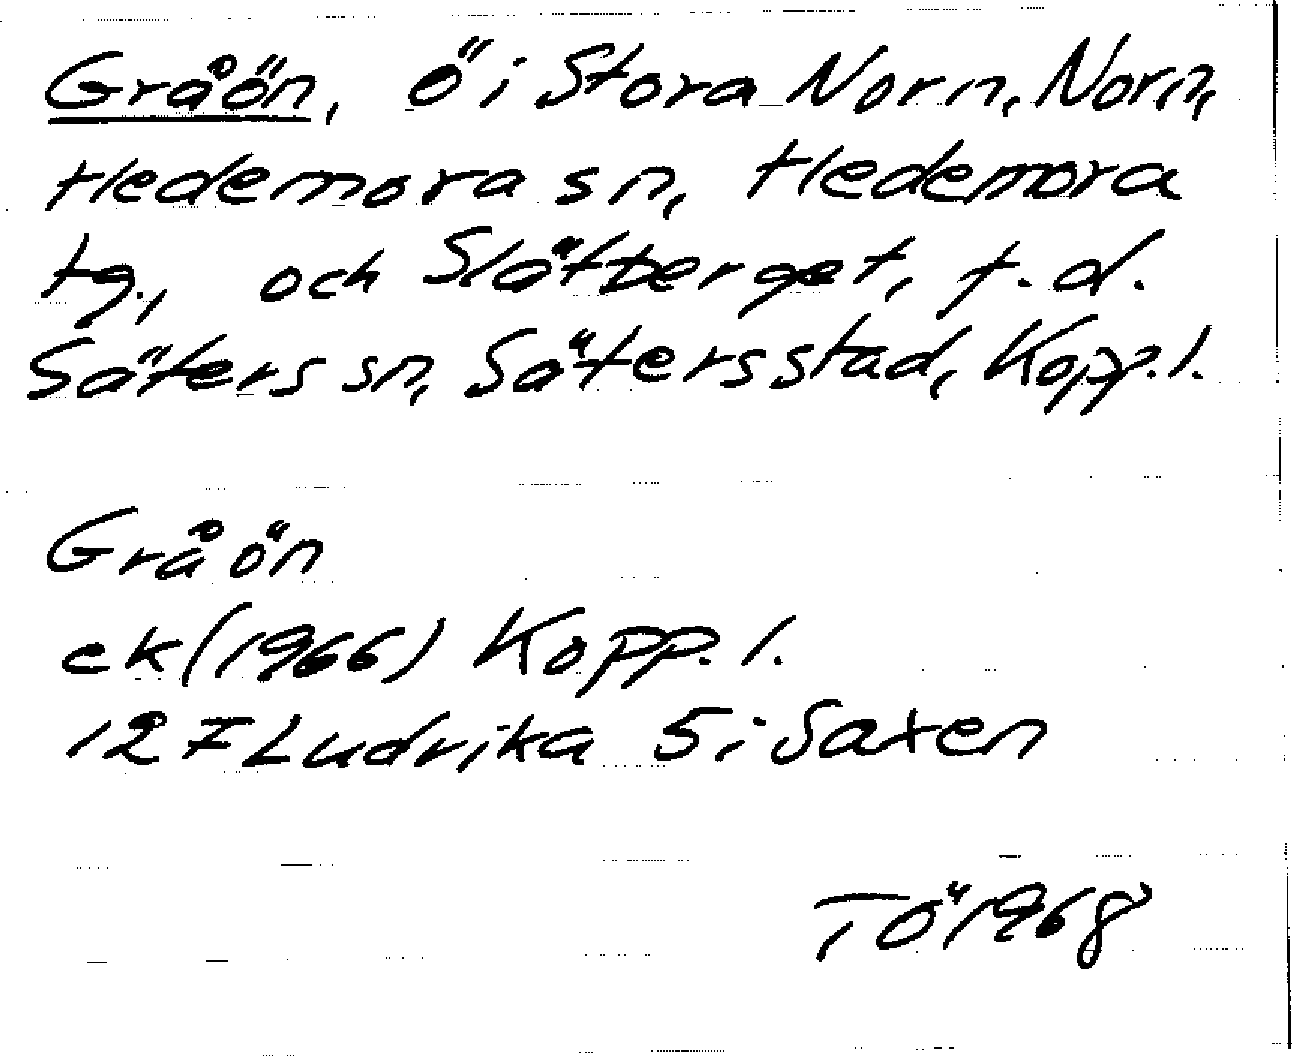 Gråön, ö i Stora Norn, Norn,
Hedemora sn, Hedemora
tg., och Slätberget, f.d.
Säters sn, Säters stad, Kopp.l.
Gråön
ek (1966) Kopp. l.
12 F Ludvika 5 i Saxen
TÖ 1968